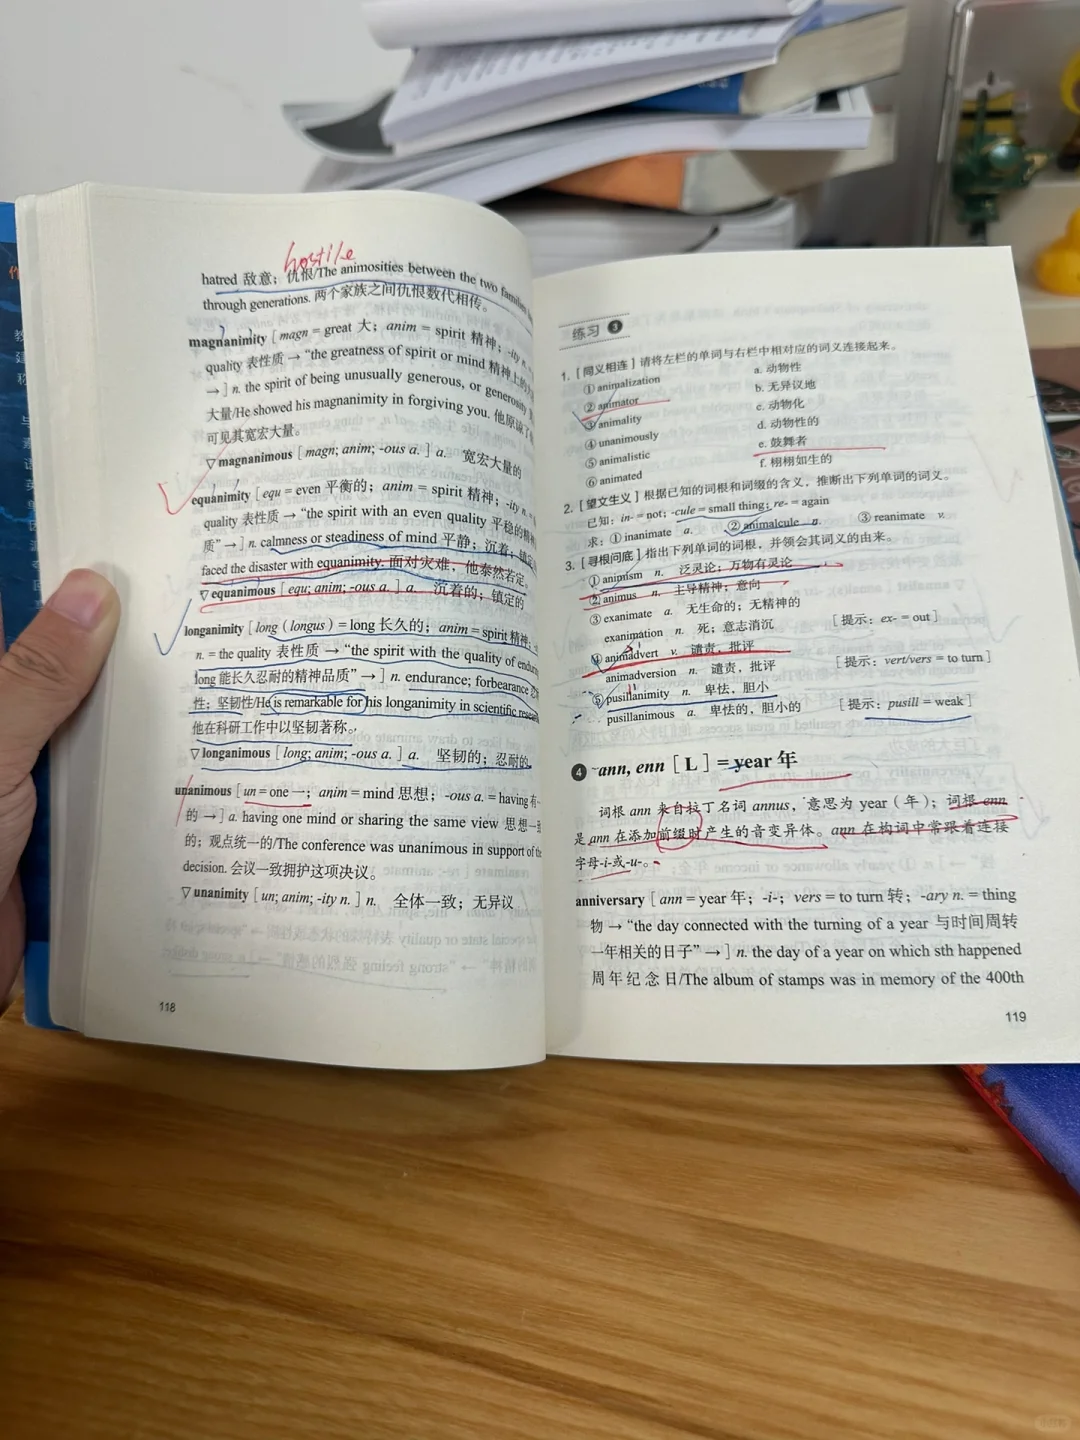 hostile
hatred 敌意；仇恨/The animosities between the two
through generations. 两个家族之间仇恨数代相传。
magnanimity [ magn = great 大；anim = spirit 精神；-ity n. =
quality 表性质 → “the greatness of spirit or mind 精神上的
→ ] n. the spirit of being unusually generous, or generosity
大量/He showed his magnanimity in forgiving you. 他原谅了
可见其宽宏大量。
▽ magnanimous [ magn; anim; -ous a. ] a. 宽宏大量的
equanimity [ equ = even 平衡的；anim = spirit 精神；-ity n. =
quality 表性质 → “the spirit with an even quality 平稳的精神
质” → ] n. calmness or steadiness of mind 平静；沉着；镇定
faced the disaster with equanimity. 面对灾难，他泰然若定。
▽ equanimous [ equ; anim; -ous a. ] a. 沉着的；镇定的
longanimity [ long ( longus ) = long 长久的；anim = spirit 精神；
n. = the quality 表性质 → “the spirit with the quality of
long 能长久忍耐的精神品质” → ] n. endurance; forbearance
性；坚韧性/He is remarkable for his longanimity in scientific
他在科研工作中以坚韧著称。
▽ longanimous [ long; anim; -ous a. ] a. 坚韧的；忍耐的
unanimous [ un = one 一；anim = mind 思想；-ous a. = having 有
的 → ] a. having one mind or sharing the same view 思想一致
的；观点统一的/The conference was unanimous in support of the
decision. 会议一致拥护这项决议。
▽ unanimity [ un; anim; -ity n. ] n. 全体一致；无异议
118
练习 3
1. [ 同义相连 ] 请将左栏的单词与右栏中相对应的词义连接起来。
① animalization a. 动物性
② animator b. 无异议地
③ animality c. 动物化
④ unanimously d. 动物性的
⑤ animalistic e. 鼓舞者
⑥ animated f. 栩栩如生的
2. [ 望文生义 ] 根据已知的词根和词缀的含义，推断出下列单词的词义。
已知：in- = not; -cule = small thing; re- = again
求：① inanimate a. ② animalcule n. ③ reanimate v.
3. [ 寻根问底 ] 指出下列单词的词根，并领会其词义的由来。
① animism n. 泛灵论；万物有灵论
② animus n. 主导精神；意向
③ exanimate a. 无生命的；无精神的 [ 提示：ex- = out ]
exanimation n. 死；意志消沉
④ animadvert v. 谴责，批评
animadversion n. 谴责，批评 [ 提示：vert/vers = to turn ]
⑤ pusillanimity n. 卑怯，胆小
pusillanimous a. 卑怯的，胆小的 [ 提示：pusill = weak ]
4 ann, enn [ L ] = year 年
词根 ann 来自拉丁名词 annus，意思为 year（年）；词根 enn
是 ann 在添加前缀时产生的音变异体。ann 在构词中常跟着连接
字母-i-或-u-。
anniversary [ ann = year 年；-i-；vers = to turn 转；-ary n. = thing
物 → “the day connected with the turning of a year 与时间周转
一年相关的日子” → ] n. the day of a year on which sth happened
周年纪念日/The album of stamps was in memory of the 400th
119